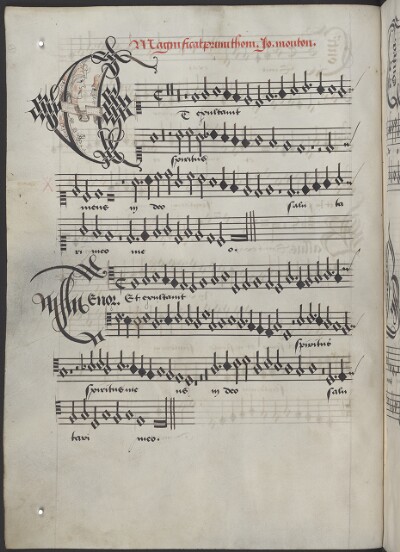 Magnificat primi thoni. Jo. mouton.
Et exultavit
spiritus
meus in deo salu ta
ri meo me o.
Tenor. Et exultavit
spiritus
spiritus me us in deo salu
tari meo.